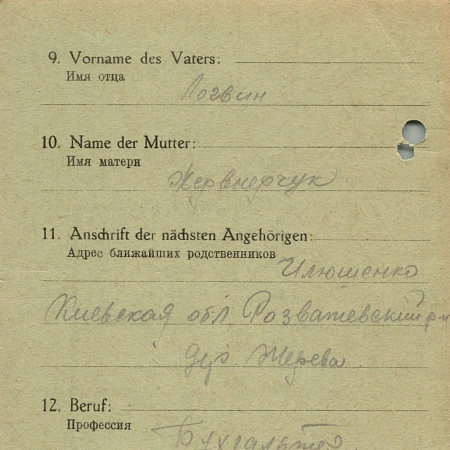 9. Vorname des Vaters:
Имя отца
Логвин
10. Name der Mutter:
Имя матери
11. Anschrift der nächsten Angehörigen:
Адрес ближайших родственников
Илюшенко
Киевская обл. Розважевский р-н
дер Жерева.
12. Beruf:
Профессия
Бухгалтер